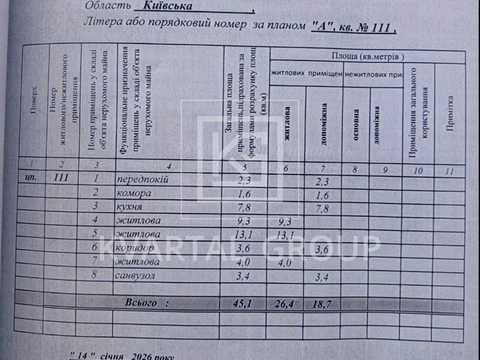 Область Київська ,
Літера або порядковий номер за планом "А", кв. № 111 ,
Поверх
Номер житлового/нежитлового приміщення
Номер приміщень у складі об'єкта нерухомого майна
Функціональне призначення приміщень у складі об'єкта нерухомого майна
Загальна площа приміщень, підрахована за формулами розрахунку площ (кв.м)
Площа (кв.метрів )
житлових приміщен нежитлових при
житлова
допоміжна
основна
допоміжна
Приміщення загального користування
Примітка
1 2 3 4 5 6 7 8 9 10 11
цп. 111 1 передпокій 2,3 2,3
2 комора 1,6 1,6
3 кухня 7,8 7,8
4 житлова 9,3 9,3
5 житлова 13,1 13,1
6 коридор 3,6 3,6
7 житлова 4,0 4,0
8 санвузол 3,4 3,4
Всього : 45,1 26,4 18,7
" 14 " січня 2026 року
KVARTAL GROUP